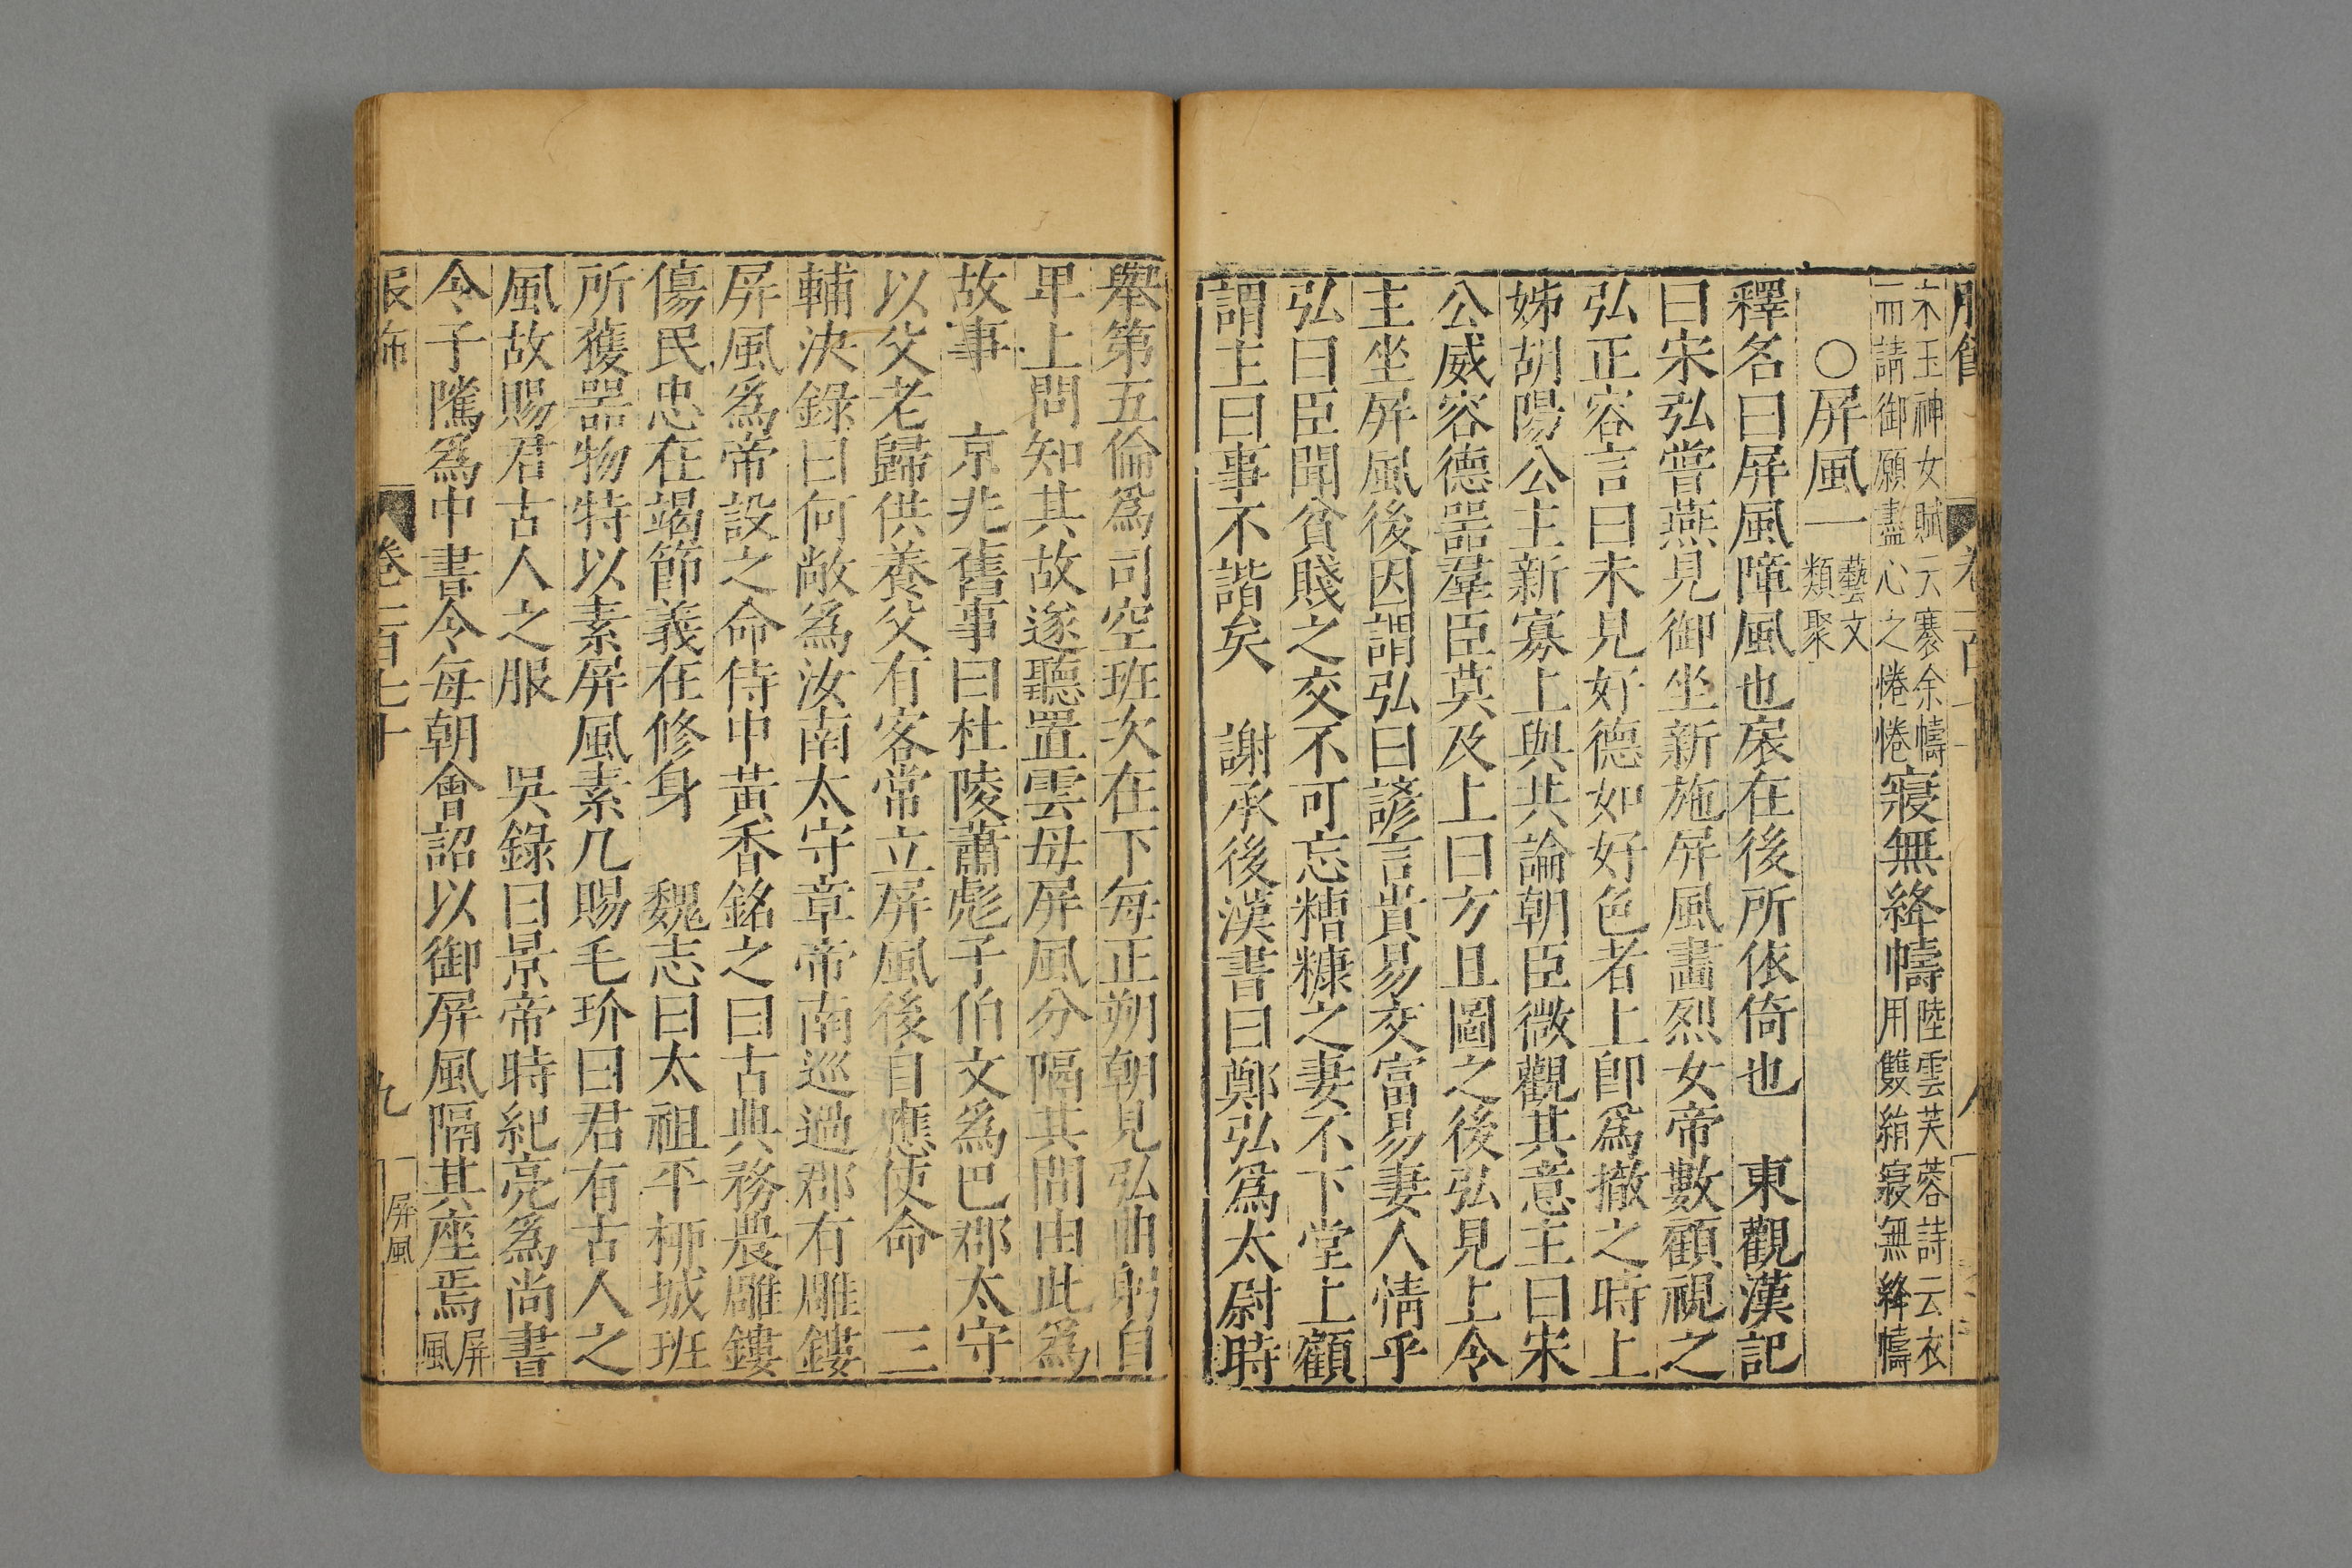 宋玉神女賦云褰余幬
而請御願盡心之惓惓
寢無絳幬
陸雲芙蓉詩云衣
用雙絹寢無絳幬
○屏風一
藝文
類聚
釋名曰屏風障風也扆在後所依倚也　東觀漢記
曰宋弘嘗燕見御坐新施屏風畫烈女帝數顧視之
弘正容言曰未見好德如好色者上卽爲撤之時上
姊胡陽公主新寡上與共論朝臣微觀其意主曰宋
公威容德器羣臣莫及上曰方且圖之後弘見上令
主坐屏風後因謂弘曰諺言貴易交富易妻人情乎
弘曰臣聞貧賤之交不可忘糟糠之妻不下堂上顧
謂主曰事不諧矣　謝承後漢書曰鄭弘爲太尉時
舉第五倫爲司空班次在下每正朔朝見弘曲躬自
卑上問知其故遂聽置雲母屏風分隔其間由此爲
故事　京兆舊事曰杜陵蕭彪子伯文爲巴郡太守
以父老歸供養父有客常立屏風後自應使命　三
輔決錄曰何敞爲汝南太守章帝南巡過郡有雕鏤
屏風爲帝設之命侍中黃香銘之曰古典務農雕鏤
傷民忠在竭節義在修身　魏志曰太祖平柳城班
所獲器物特以素屏風素几賜毛玠曰君有古人之
風故賜君古人之服　吳錄曰景帝時紀亮爲尚書
令子隲爲中書令每朝會詔以御屏風隔其座焉
屏
風
服飾
卷三百七十
九
屏風